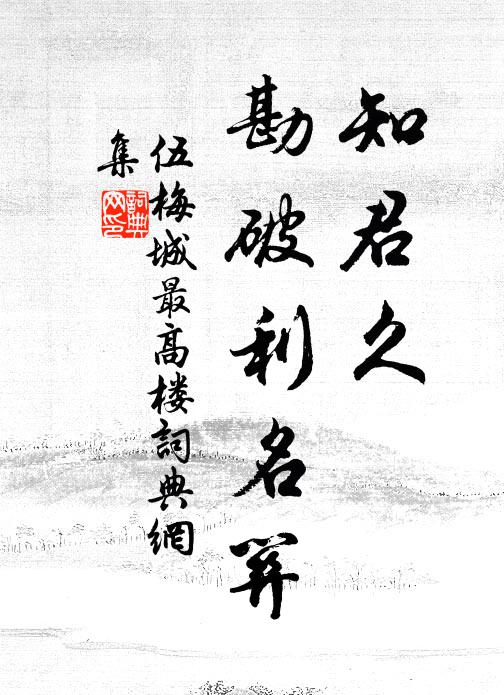 知君久
勘破利名關
伍梅城最高楼詞典網
集
詞典
网印